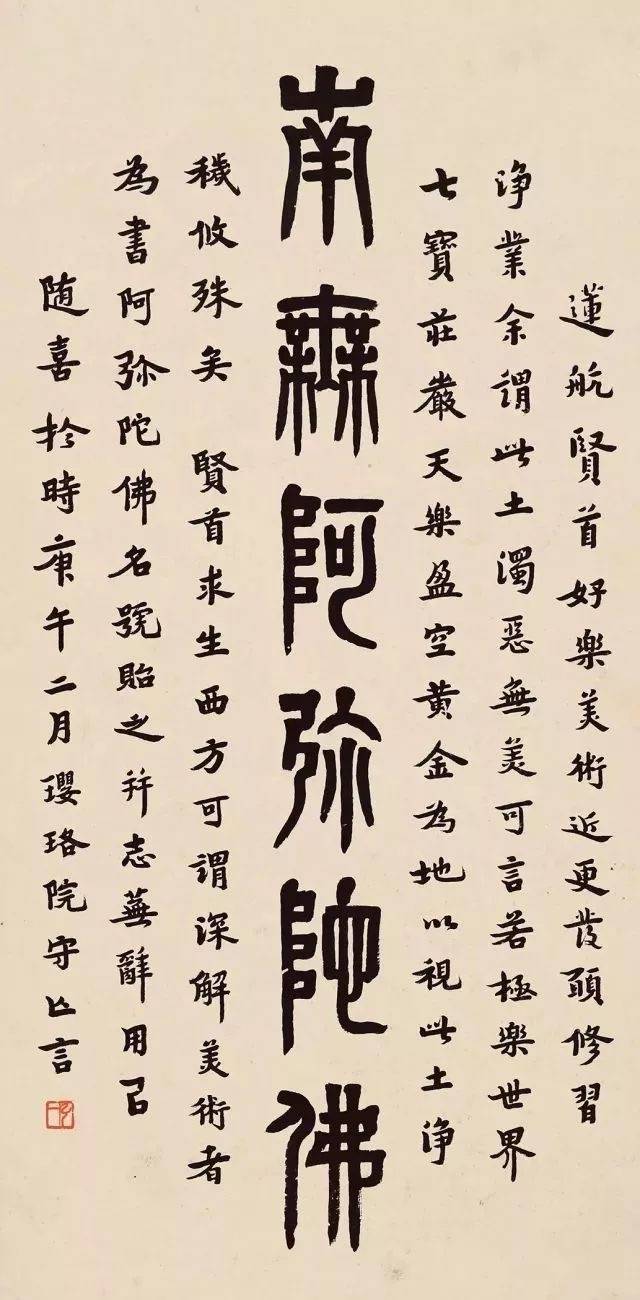 南無阿弥陀佛
蓮航賢首好樂美術近更發願修習
浄業余謂此土濁惡無美可言若極樂世界
七寶莊嚴天樂盈空黄金為地以視此土浄
穢攸殊矣 賢首求生西方可謂深解美術者
為書阿弥陀佛名號貽之并志蕪辭用㠯
随喜於時庚午二月瓔珞院守亾言